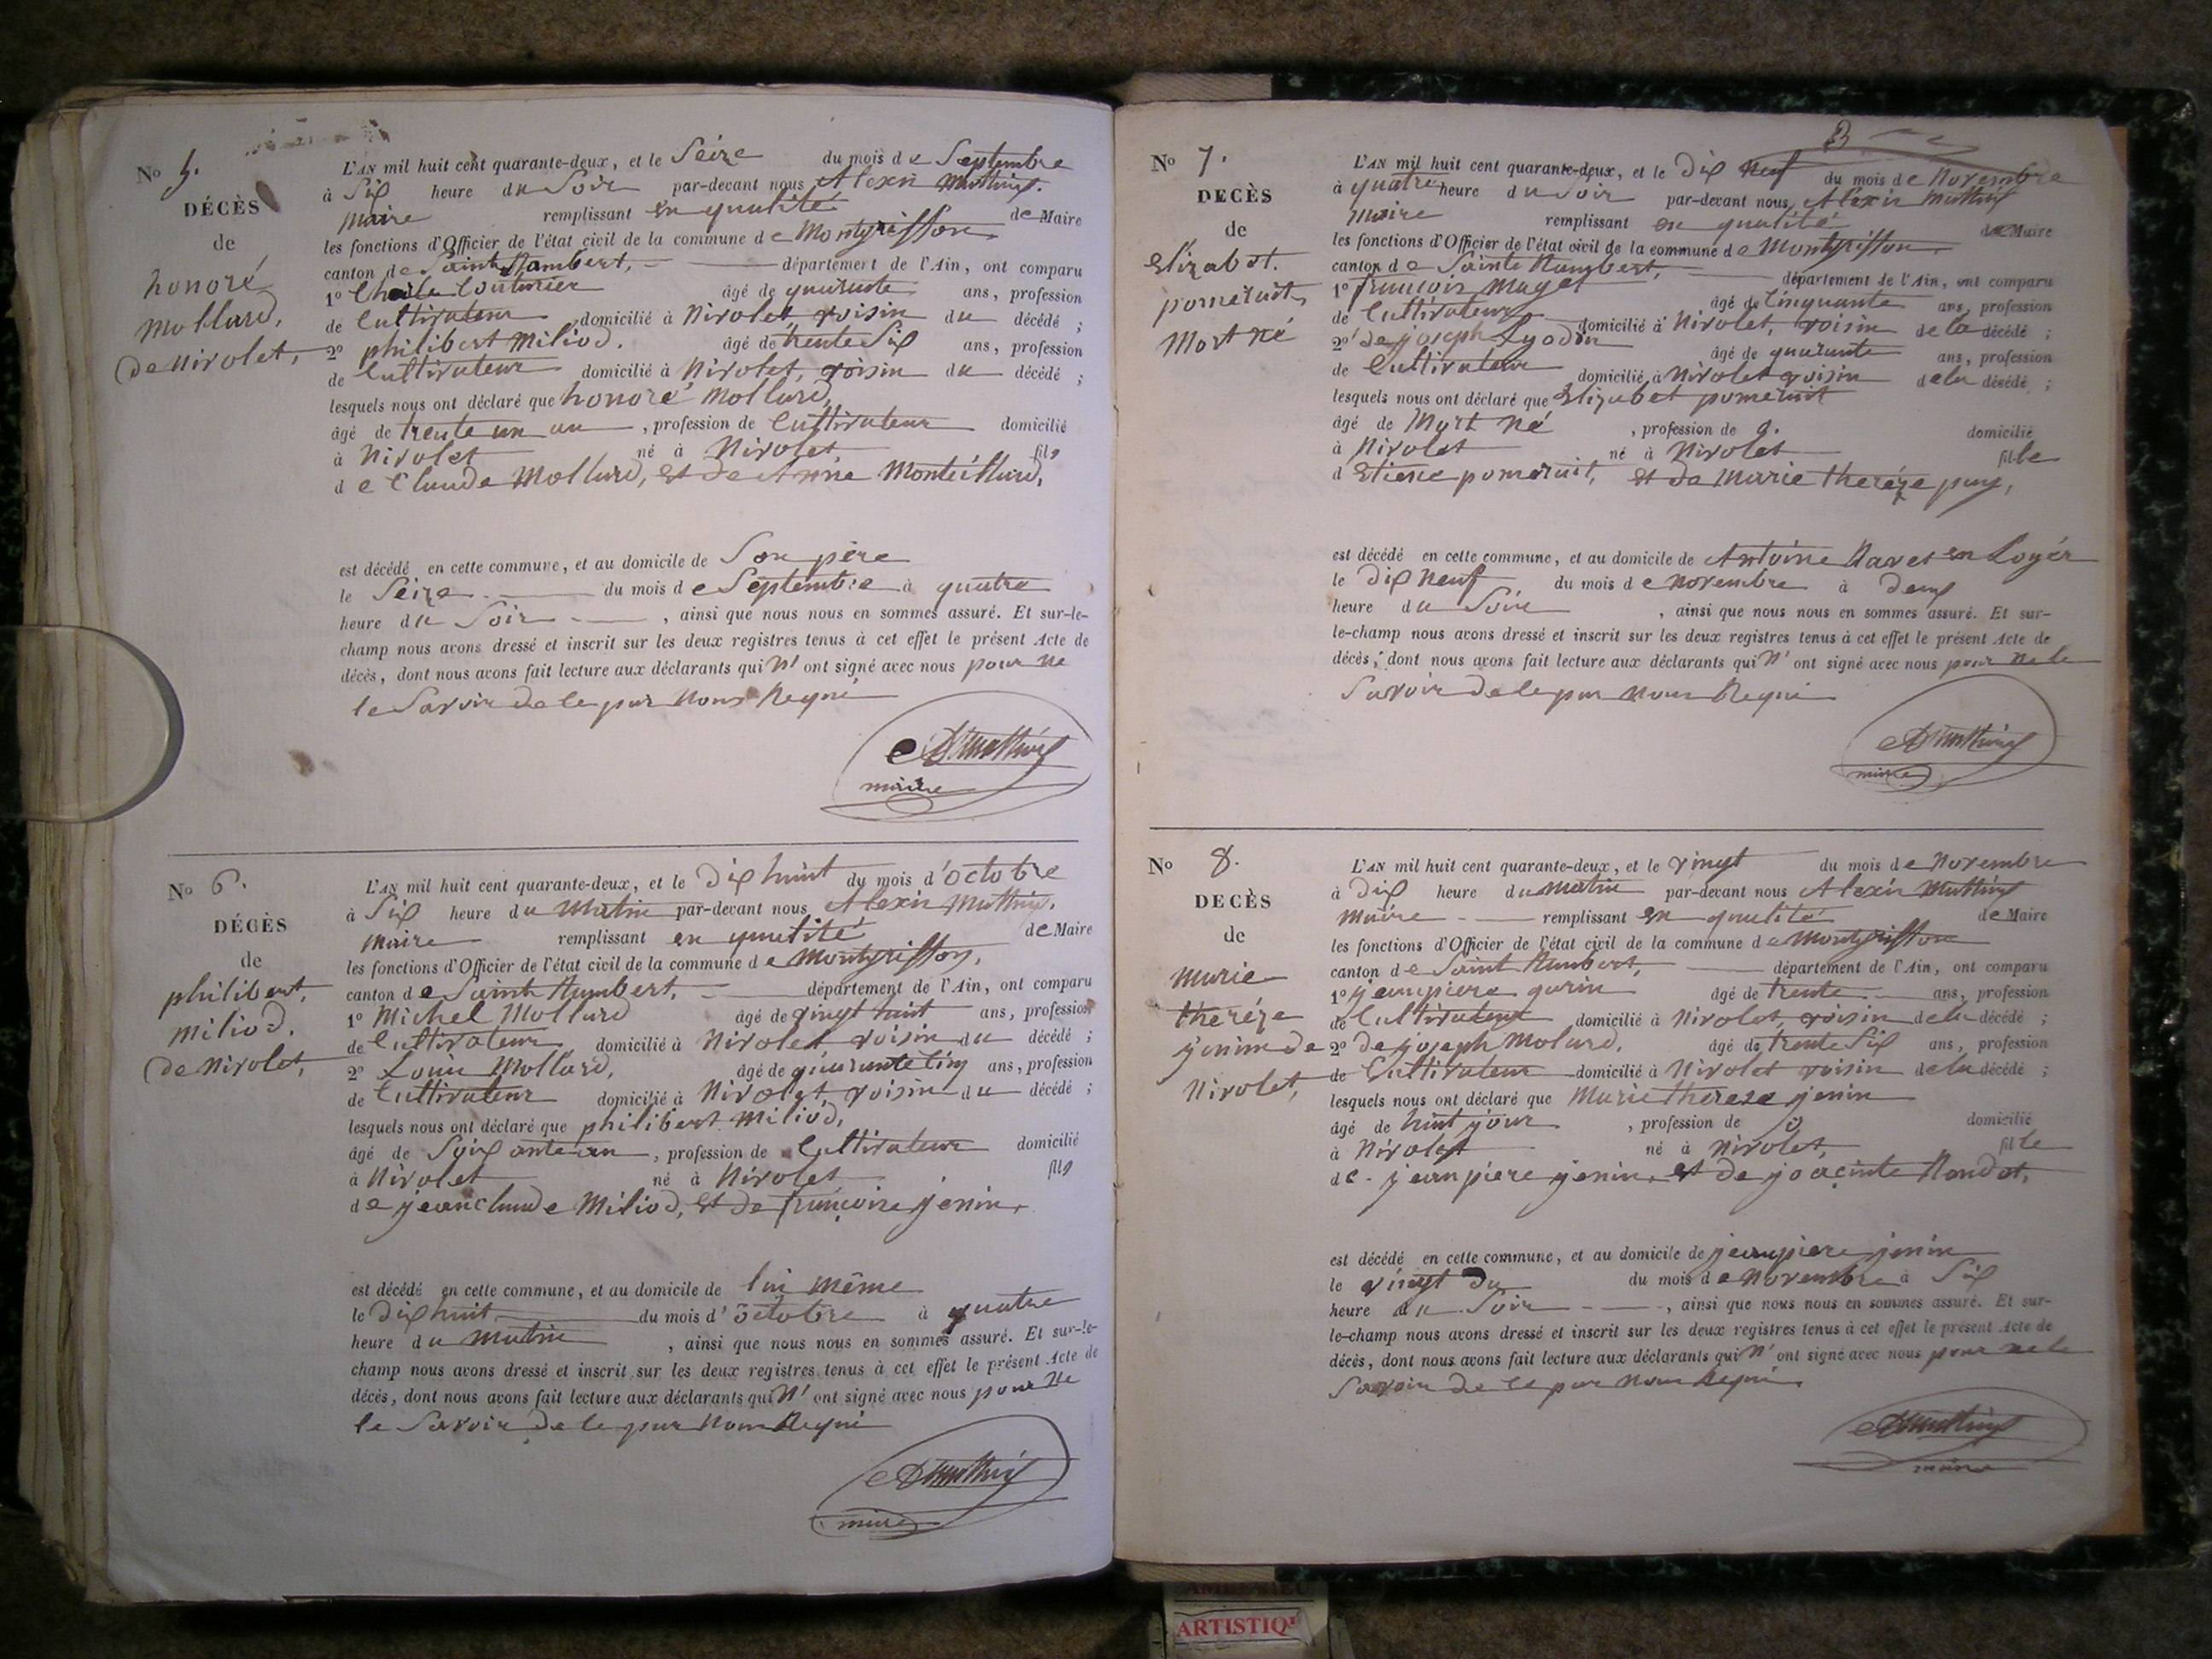 No 5.
DÉCÈS
de
honoré
mollard,
de Nivolet,
L'AN mil huit cent quarante-deux, et le Seize du mois de Septembre
à Six heure du Soir par-devant nous Alexis
maire remplissant en qualité de Maire
les fonctions d'Officier de l'état civil de la commune de Montgriffon
canton de Saint Rambert, département de l'Ain, ont comparu
1o Couturier âgé de quarante ans, profession
de Cultivateur domicilié à Nivolet, voisin du décédé ;
2o philibert Miliod. âgé de trente Six ans, profession
de Cultivateur domicilié à Nivolet, voisin du décédé ;
lesquels nous ont déclaré que honoré Mollard,
âgé de trente un an , profession de Cultivateur domicilié
à Nivolet né à Nivolet fils
de Claude Mollard, et de Anne Monteillard,
est décédé en cette commune, et au domicile de Son père
le Seize du mois de Septembre à quatre
heure du Soir , ainsi que nous nous en sommes assuré. Et sur-le-
champ nous avons dressé et inscrit sur les deux registres tenus à cet effet le présent Acte de
décès, dont nous avons fait lecture aux déclarants qui N' ont signé avec nous pour ne
le Savoir de le par Nous Requi
maire
No 6.
DÉCÈS
de
philibert,
miliod.
de Nivolet,
L'AN mil huit cent quarante-deux, et le Dix huit du mois d'octobre
à Six heure du Matin par-devant nous Alexis
maire remplissant en qualité de Maire
les fonctions d'Officier de l'état civil de la commune de Montgriffon,
canton de Saint Rambert, département de l'Ain, ont comparu
1o Michel Mollard âgé de vingt huit ans, profession
de Cultivateur domicilié à Nivolet voisin du décédé ;
2o Louis Mollard, âgé de quarante Cinq ans, profession
de Cultivateur domicilié à Nivolet, voisin du décédé ;
lesquels nous ont déclaré que philibert Miliod,
âgé de Soixante an , profession de Cultivateur domicilié
à Nivolet né à Nivolet fils
de jean claude Miliod, et de françoise jenin,
est décédé en cette commune, et au domicile de lui même
le Dix huit du mois d'octobre à quatre
heure du matin , ainsi que nous nous en sommes assuré. Et sur-le-
champ nous avons dressé et inscrit sur les deux registres tenus à cet effet le présent Acte de
décès, dont nous avons fait lecture aux déclarants qui N' ont signé avec nous pour ne
le Savoir de le par Nous Requi
maire
No 7.
DECÈS
de
Elizabet.
pomeruit,
Mort Né
L'AN mil huit cent quarante-deux, et le Dix Neuf du mois de Novembre
à quatre heure du Soir par-devant nous Alexis
maire remplissant en qualité de Maire
les fonctions d'Officier de l'état civil de la commune de Montgriffon
canton de Sainte Rambert, département de l'Ain, ont comparu
1o françois âgé de Cinquante ans, profession
de Cultivateur domicilié à Nivolet, voisin de la décédé ;
2o de joseph âgé de quarante ans, profession
de Cultivateur domicilié à Nivolet voisin de la décédé ;
lesquels nous ont déclaré que Elizabet pomeruit
âgé de Mort Né , profession de domicilié
à Nivolet né à Nivolet fille
d Etiene pomeruit, et de marie thereze puy,
est décédé en cette commune, et au domicile de Antoine Ravet en Loyér
le Dix Neuf du mois de novembre à Deux
heure du Soir , ainsi que nous nous en sommes assuré. Et sur-
le-champ nous avons dressé et inscrit sur les deux registres tenus à cet effet le présent Acte de
décès, dont nous avons fait lecture aux déclarants qui N' ont signé avec nous pour ne le
Savoir de le par nous Requi
maire
No 8.
DECÈS
de
marie
thereze
jenin de
Nivolet,
L'AN mil huit cent quarante-deux, et le vingt du mois de Novembre
à Dix heure du matin par-devant nous Alexis
maire remplissant en qualité de Maire
les fonctions d'Officier de l'état civil de la commune de Montgriffon
canton de Saint Rambert, département de l'Ain, ont comparu
1o jean piere gorin âgé de trente ans, profession
de Cultivateur domicilié à Nivolet, voisin de la décédé ;
2o de joseph Molard, âgé de trente Six ans, profession
de Cultivateur domicilié à Nivolet voisin de la décédé ;
lesquels nous ont déclaré que Marie thereze jenin
âgé de huit jour , profession de domicilié
à Nivolet né à Nivolet, fille
de jean piere jenin, et de joacinte
est décédé en cette commune, et au domicile de jean piere jenin
le vingt du du mois de Novembre à Six
heure du Soir , ainsi que nous nous en sommes assuré. Et sur-
le-champ nous avons dressé et inscrit sur les deux registres tenus à cet effet le présent Acte de
décès, dont nous avons fait lecture aux déclarants qui N' ont signé avec nous pour ne le
Savoir de le par nous Requi
maire
ARTISTIQU